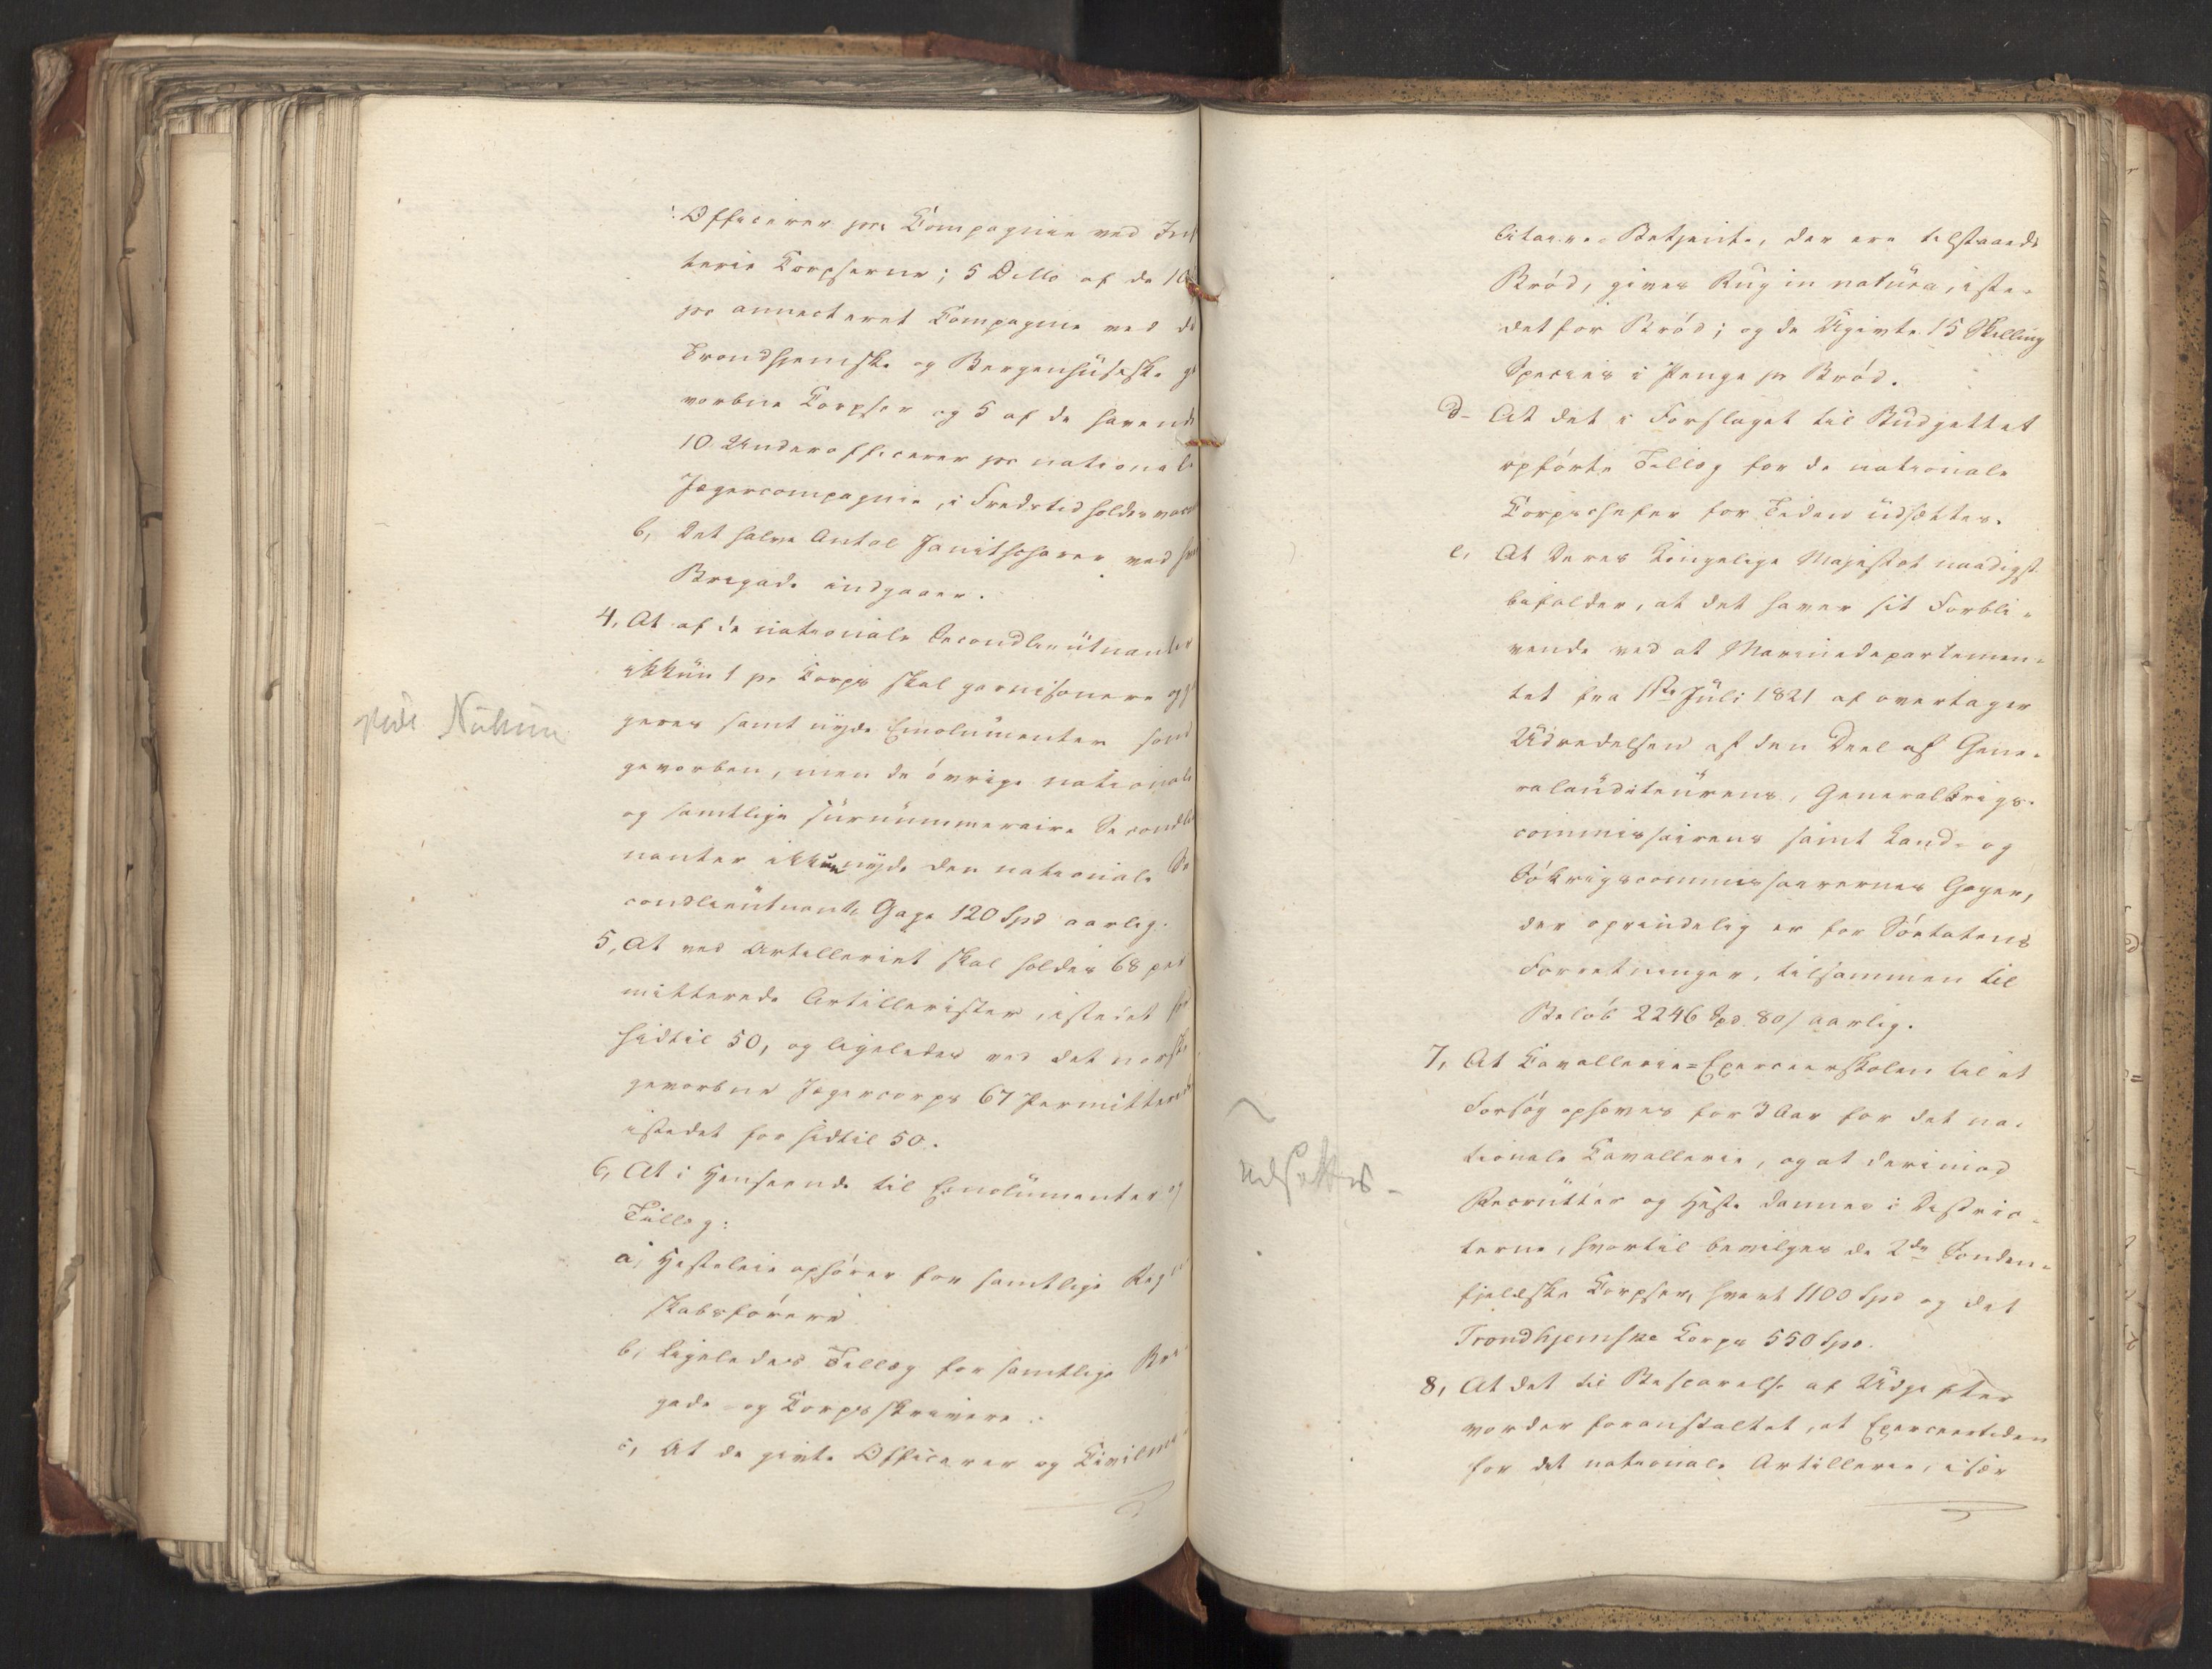 Officerer pr Compagnie ved Inf
terie Corpserne; 5 Ditto af de 10
pr annecteret Compagnie ved de
Trondhjemske og Bergenhüsiske ge
vorbne Corpser og 5 af de havende
10 Underofficerer pr nationale
Jægercompagnie, i Fredstid holdes vacant
b, Det halve Antal Janitscharer ved hver
Brigade indgaaer.
4, At af de nationale Secondlieütnanter
ikkün 1 pr Corps skal garnisonere og
geres samt nyde Emolümenter som
gevorben, men de óvrige nationale
og samtlige sürnümmeraire Secondlieut
nanter ikkün nyde den nationale Se
condlieütnants Gage 120 Spd aarlig.
5, At ved Artilleriet skal holdes 68 per
mitterede Artillerister, istedet for
hidtil 50, og ligeledes ved det norske
gevorbne Jægercorps 67 Permitterede
istedet for hidtil 50.
6, At i Henseende til Emolümenter og
Tillæg:
a, Hesteleie ophórer for samtlige Regn
skabsfórere
b, ligeledes Tillæg for samtlige Bri-
gade- og Corpsskrivere.
c, At de givte Officerer og Civilmi-
litaire-Betjente, der ere tilstaaede
Bród, gives Rug in natüra, iste-
det for Bród; og de Ugivte 15 Skilling
Species i Penge pr Bród.
d- At det i Forslaget til Büdgettet
opfórte Tillæg for de nationale
Corpschefer for Tiden üdsættes.
e, At Deres Kongelige Majestæt naadigst
befalder, at det haver sit Forbli-
vende ved at Marinedepartemen-
tet fra 1ste Jüli 1821 af overtager
Üdredelsen af den Deel af Gene-
ralaüditeürens, Generalkrigs-
commissairens samt Land- og
Sókrigscommissairernes Gager,
der oprindelig er for Sóetatens
Forretninger, tilsammen til
Belób 2246 Spd. 80 ſ aarlig.
7, At Cavallerie=Exerceerskolen til et
Forsóg ophæves for 3 Aar for det na-
tionale Cavallerie, og at derimod
Recrütter og Heste dannes i Distric-
terne, hvortil bevilges de 2de Sónden-
fjeldske Corpser, hvert 1100 Spd og det
Trondhjemske Corps 550 Spd.
udsættes-
8, At det til Besparelse af Üdgifter
vorder foranstaltet, at Exerceertiden
for det nationale Artillerie, især